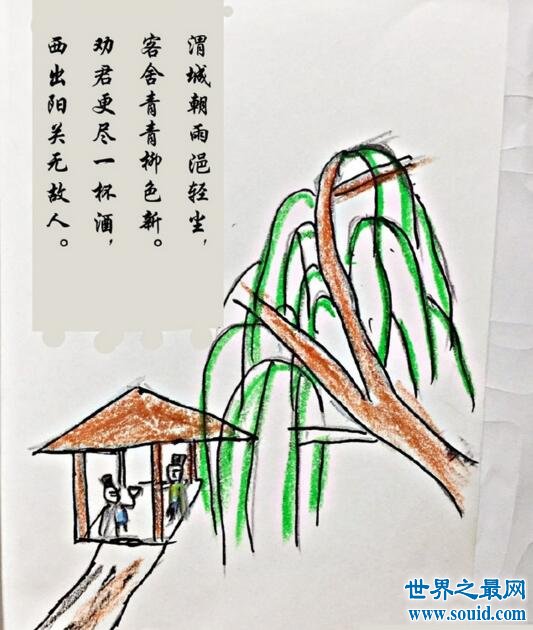 渭城朝雨浥轻尘，
客舍青青柳色新。
劝君更尽一杯酒，
西出阳关无故人。
世界之最网
www.souid.com